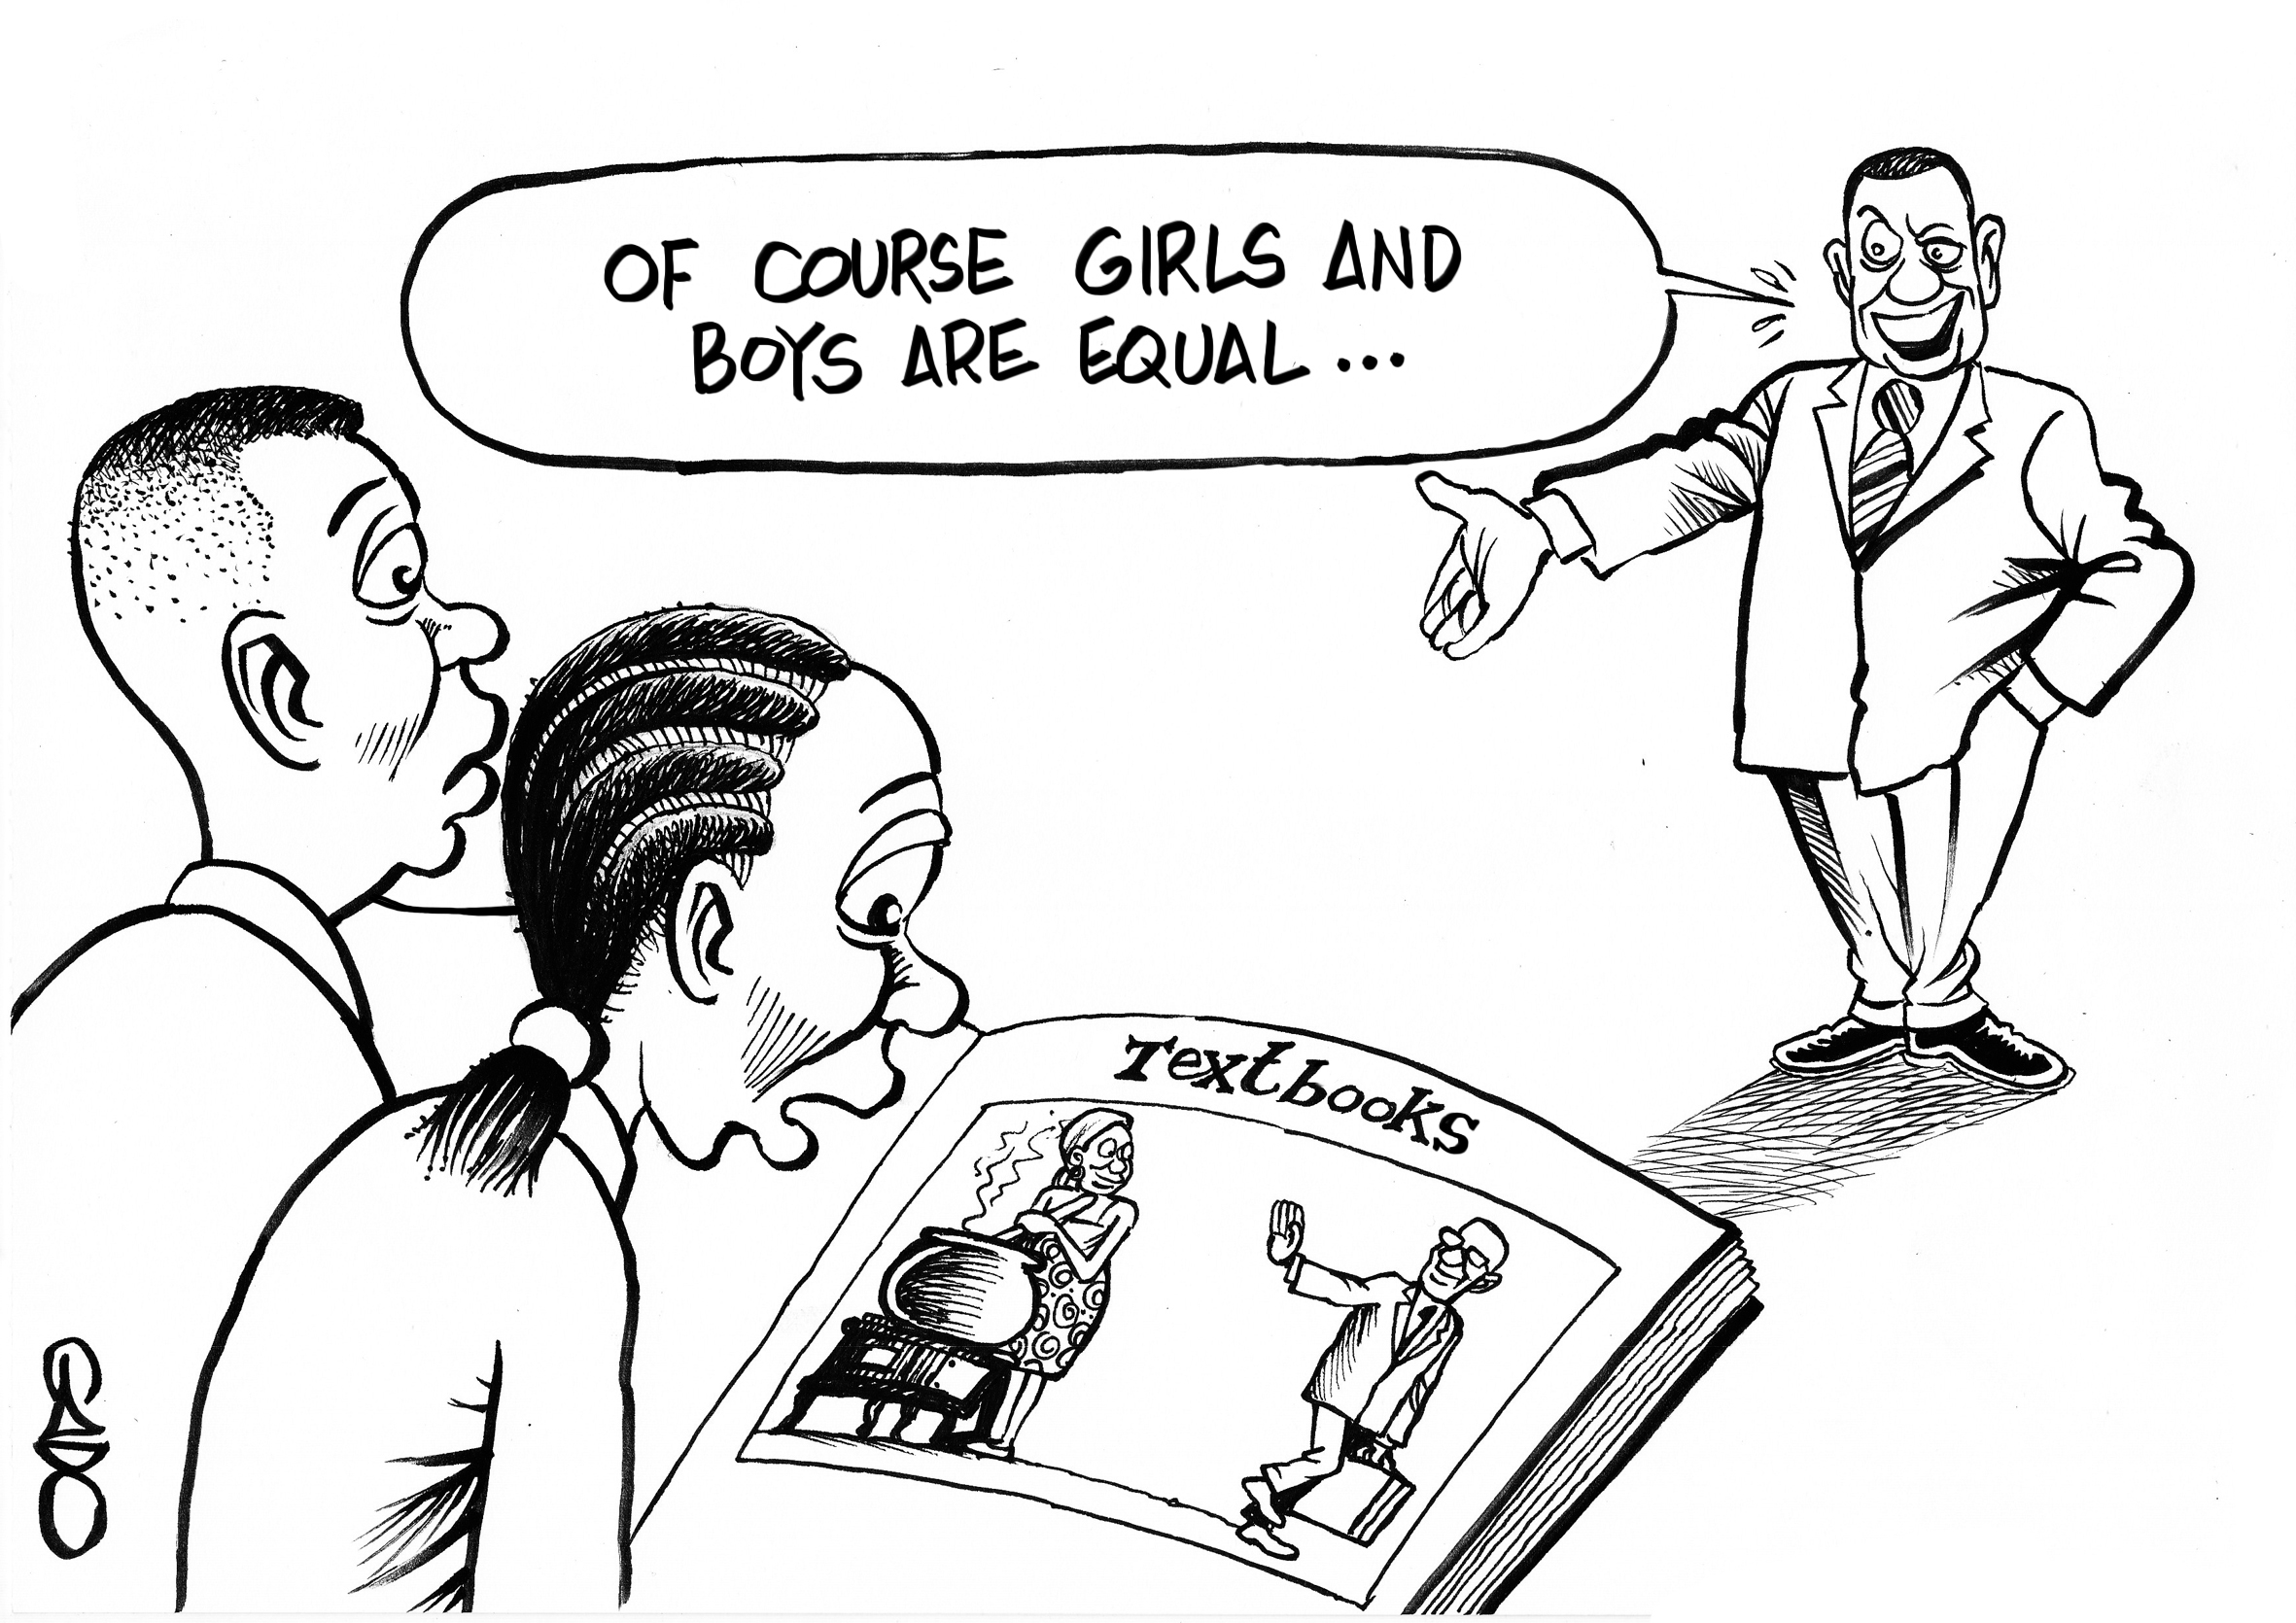 OF COURSE GIRLS AND
BOYS ARE EQUAL...
Textbooks
GADO